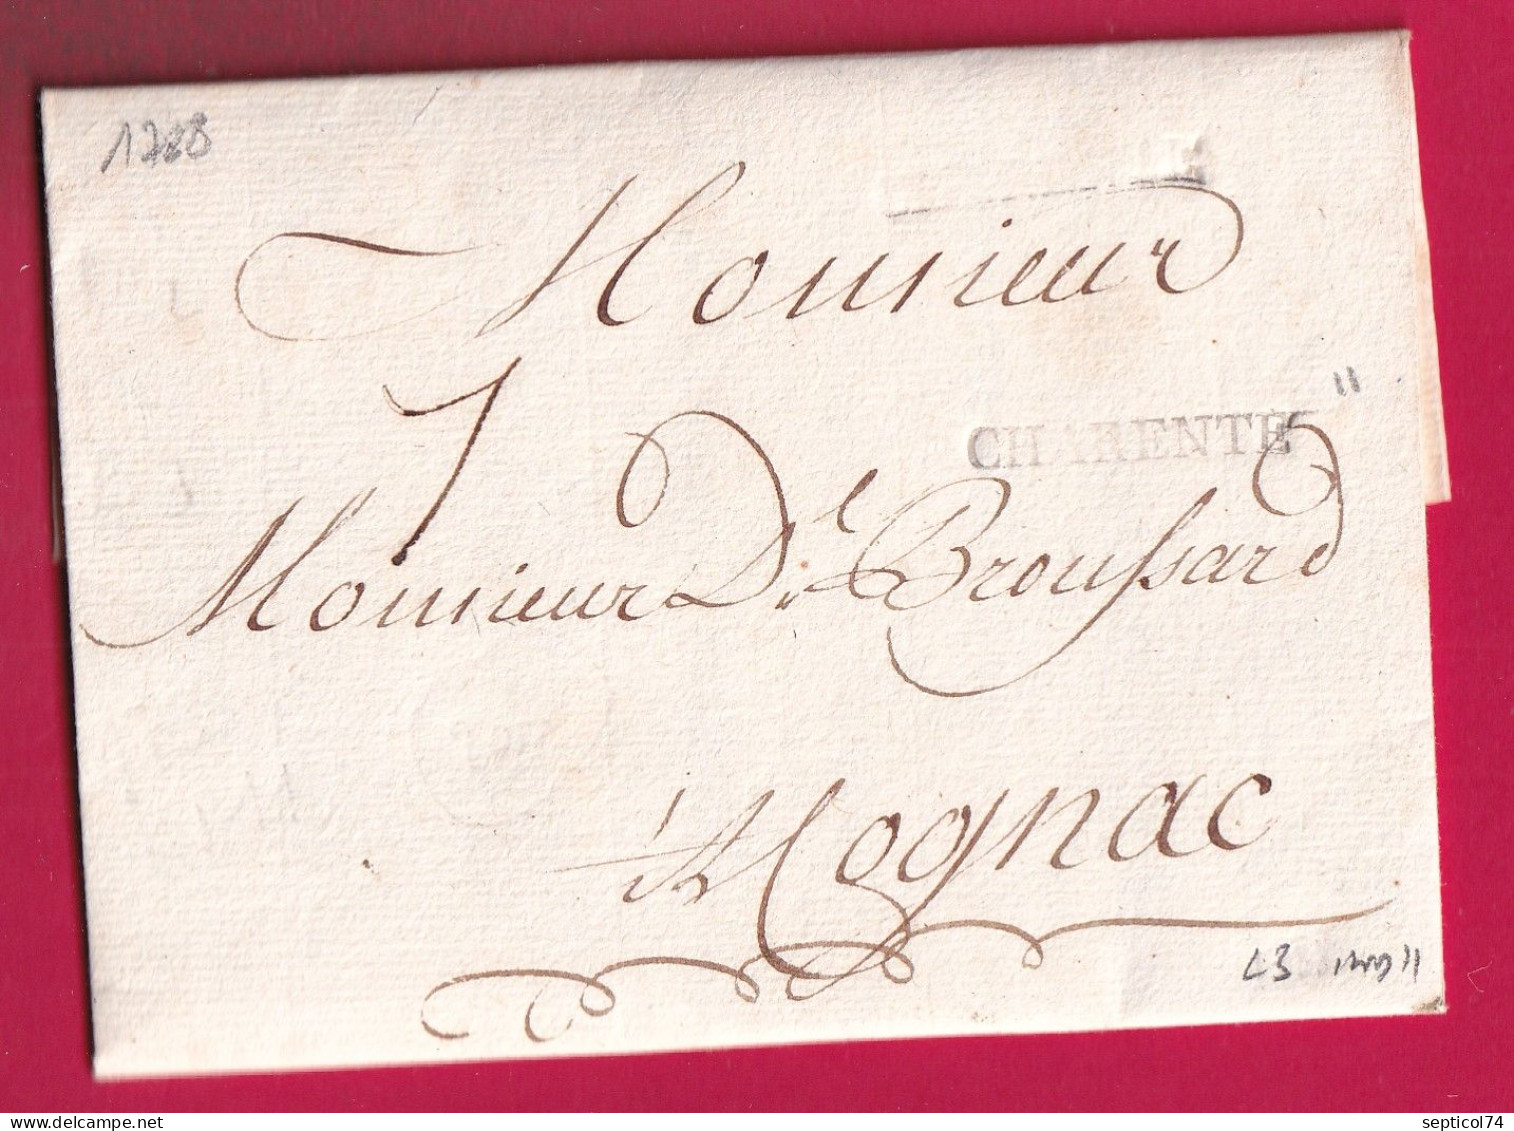 1788
Monsieur
7
"
CHARENTE
Monsieur De Broussard
à Cognac
L3
septicol74